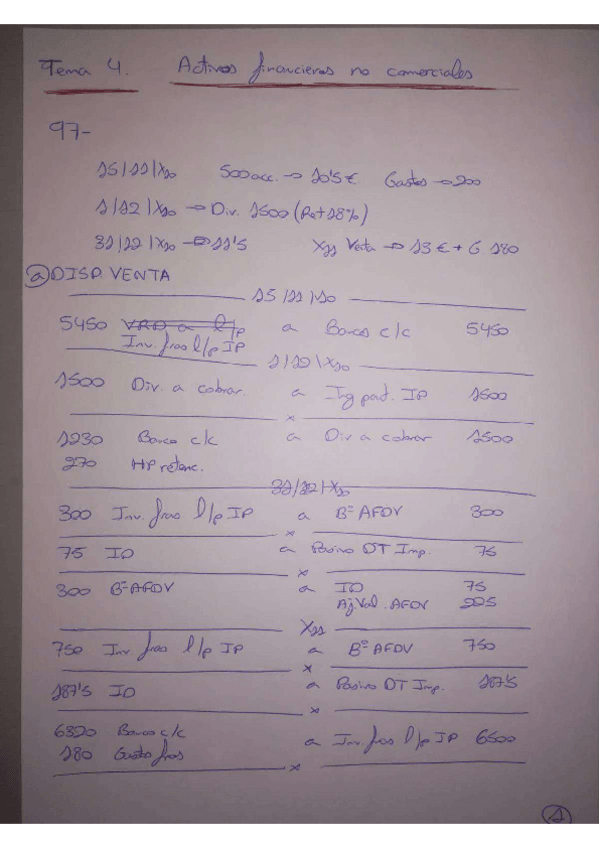 Tema 4. Activos financieros no comerciales
97-
15/11/X10 500 acc. → 10'5 € Gastos → 200
1/12/X10 → Div. 1500 (Ret 18%)
31/12/X10 → 11'5 X11 Venta → 13 € + G. 180
a DISP. VENTA
15/11/X10
5450 VRD a l/p a Banco c/c 5450
Inv. fras l/p IP
1/12/X10
1500 Div. a cobrar. a Ing part. IP 1500
x
1230 Banco c/c a Div a cobrar 1500
270 HP retenc.
31/12/X10
300 Inv. fras l/p IP a Bº AFDV 300
x
75 ID a Pasivo DT Imp. 75
x
300 Bº AFDV a ID 75
Aj. Val. AFDV 225
X11
750 Inv fras l/p IP a Bº AFDV 750
x
187'5 ID a Pasivo DT Imp. 187'5
x
6320 Banco c/c a Inv. fras l/p IP 6500
180 Gasto fras
x
1